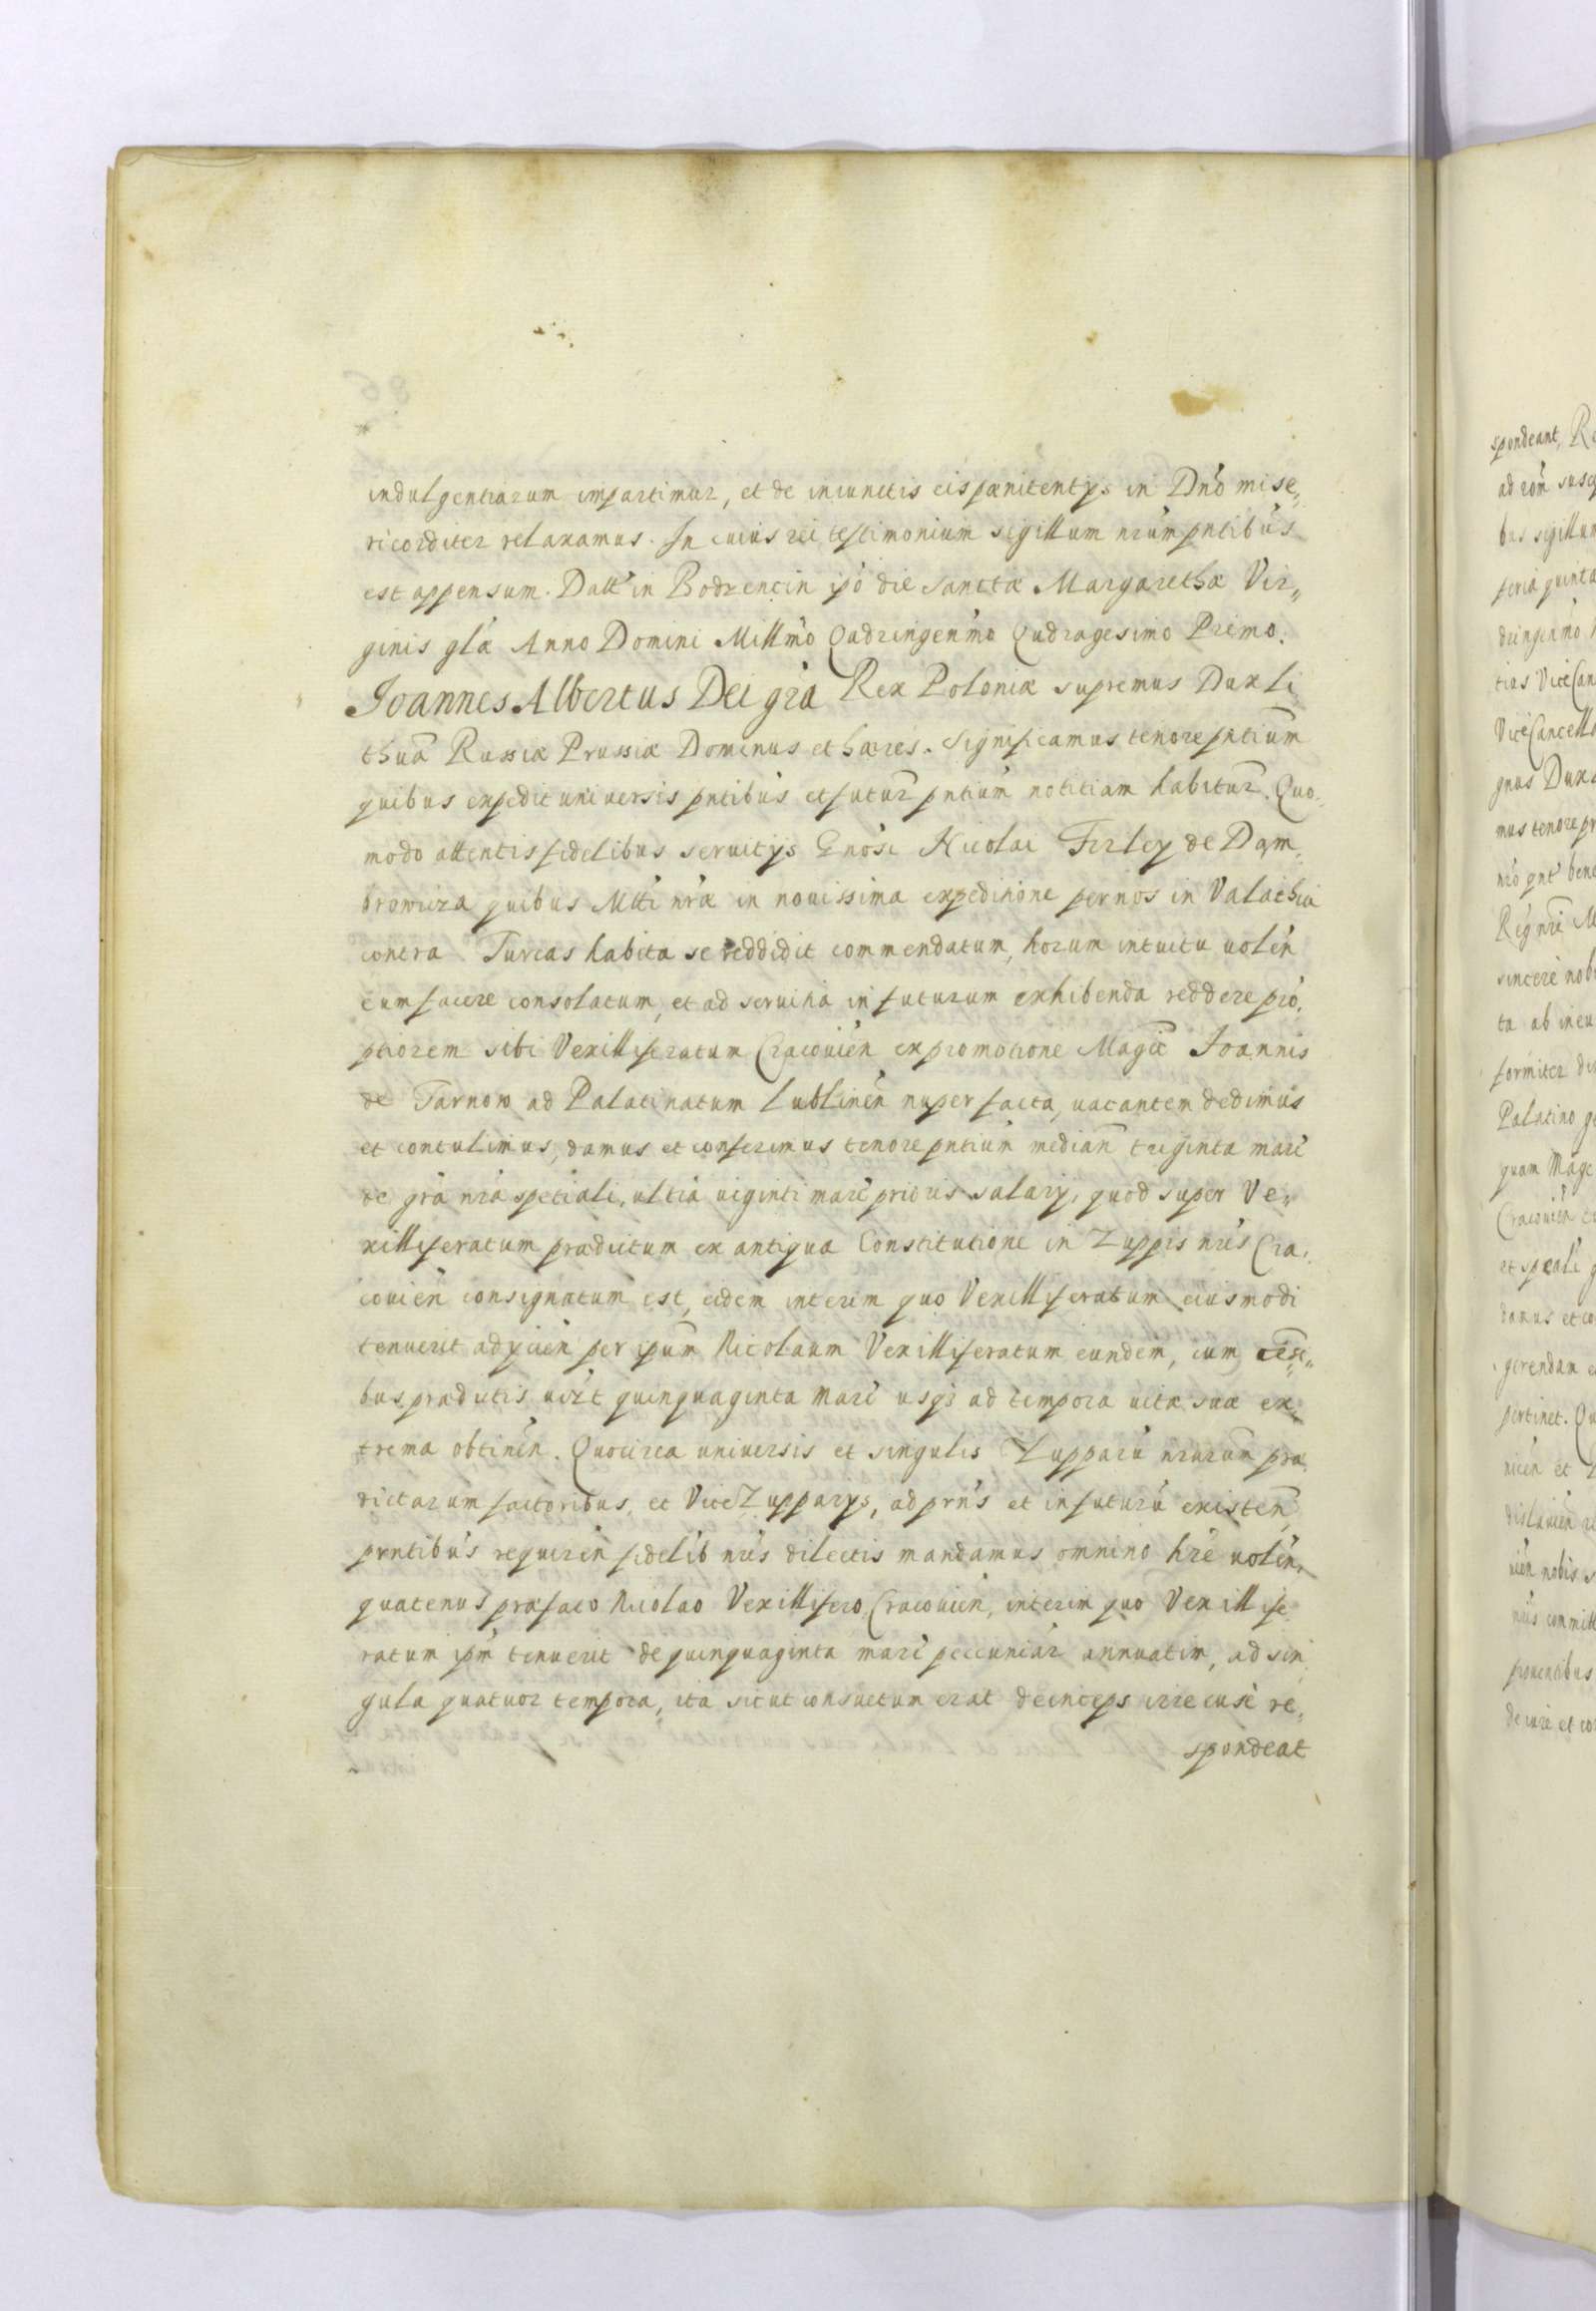 indulgentiarum impartimur, et de iniunctis eis pænitentijs in Dño mise„
ricorditer relaxamus. In cuius rei testimonium sigillum nrũm pntibus
est appensum. Datt in Bodzencin ipõ die Sanctæ Margarethæ Vir„
ginis gla Anno Domini Millmo Qadringenmo Qudragesimo Primo.
Joannes Albertus Dei gra Rex Poloniæ supremus Dux Li
thuã Russiæ Prussiæ Dominus et hæres. Significamus tenore pntium
quibus expedit universis pntibus et futur pntium notitiam habitur. Quo„
modo attentis fidelibus seruitijs Gnosi Nicolai Firley de Dąm„
browicza quibus Mtti nræ in nouissima expeditione per nos in Valachia
contra Turcas habita se reddidit commendatum, horum intuitu uolen
eum facere consolatum, et ad seruitia in futurum exhibenda reddere pro„
ptiorem sibi Vexilliferatum Cracouien ex promotione Magci Joannis
de Tarnow ad Palatinatum Lublinen nuper facta, uacantem dedimus
et contulimus, damus et conferimus tenore pntium median triginta marc
de gra nra speciali, ultra uiginti marc prioris salarij, quod super Ve„
xilliferatum prædictum ex antiqua Constitutione in Zuppis nris Cra„
couien consignatum est, eidem interim quo Vexilliferatum eiusmodi
tenuerit adijcien per ipum Nicolaum Vexilliferatum eundem, cum
bus prædictis uizt quinquaginta marc usqs ad tempora uitæ suæ ex„
trema obtinen. Quocirca universis et singulis Zupparu nrarum præ
dictarum factoribus, et ViceZupparijs, ad prns et in futuru existen
prntibus requiren fidelib nris dilectis mandamus omnino hre uolen,
quatenus præfato Nicolao Vexillifero Cracouien, interim quo Vexillife
ratum ipm tenuerit de quinquaginta marc pecuniar annuatim, ad sin
gula quatuor tempora, ita sicut consuetum erat deinceps irrecuse re„
spondeat
spondeant, Re
bus sigillum
feria quinta
tias ViceCan
ViceCancella
gnus Dux
mus tenore pr
sincere nob
ta ab ineu
Palatino
quam Mage
damus et co
gerendam
pertinet. Qu
prouentibus
de iure et co